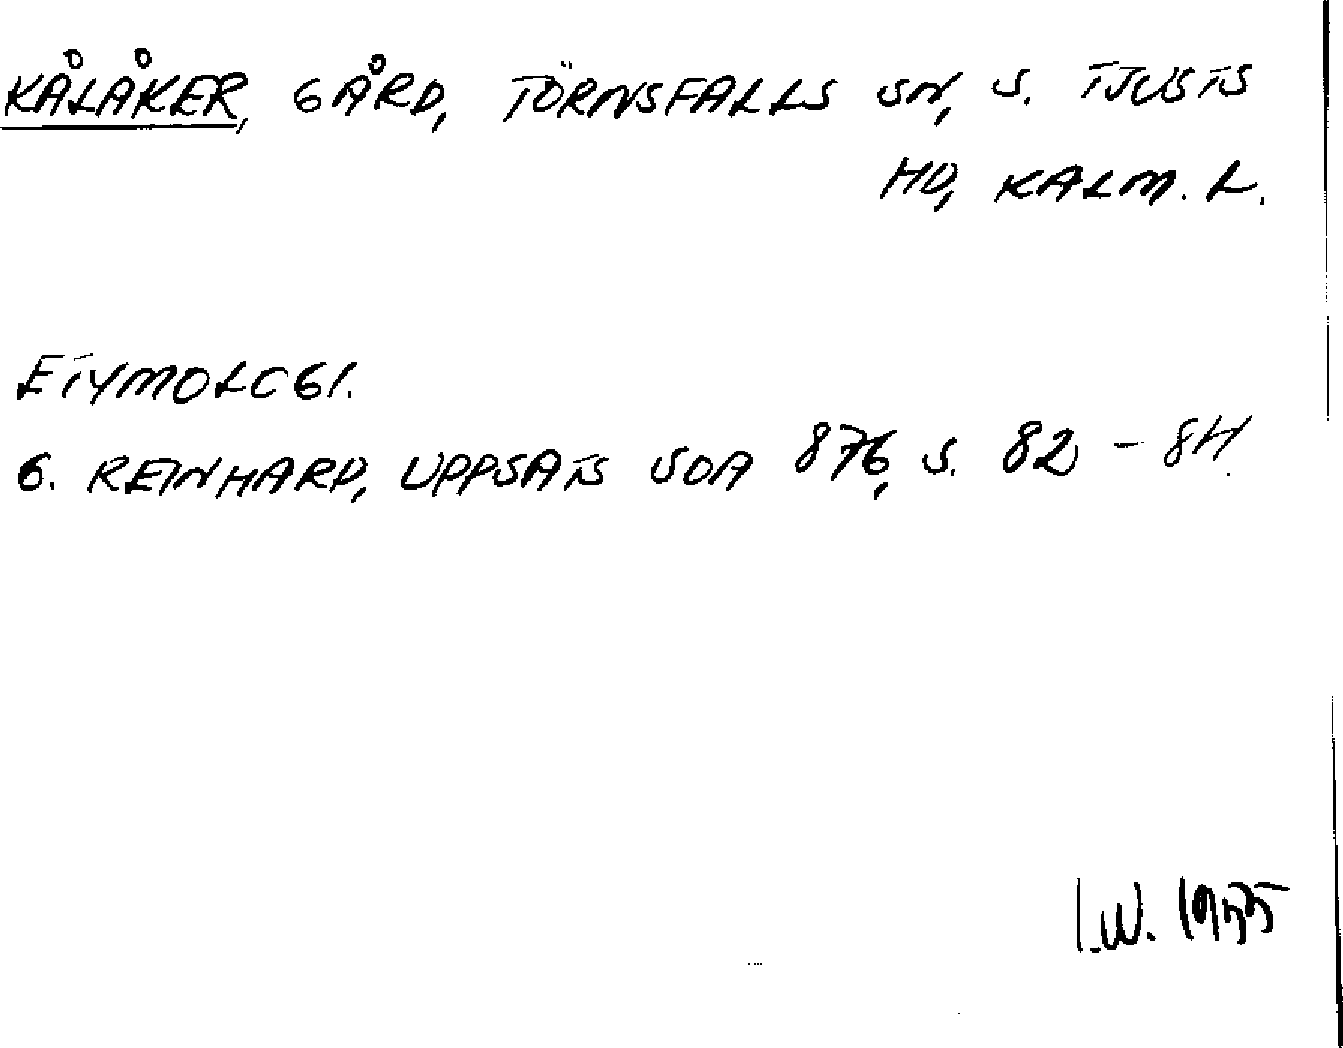 KÅLÅKER, GÅRD, TÖRNSFALLS SN, S. TJUSTS
HD, KALM. L.
ETYMOLOGI.
G. REINHARD, UPPSATS SOA 876, S. 82 - 84.
I.W. 1955